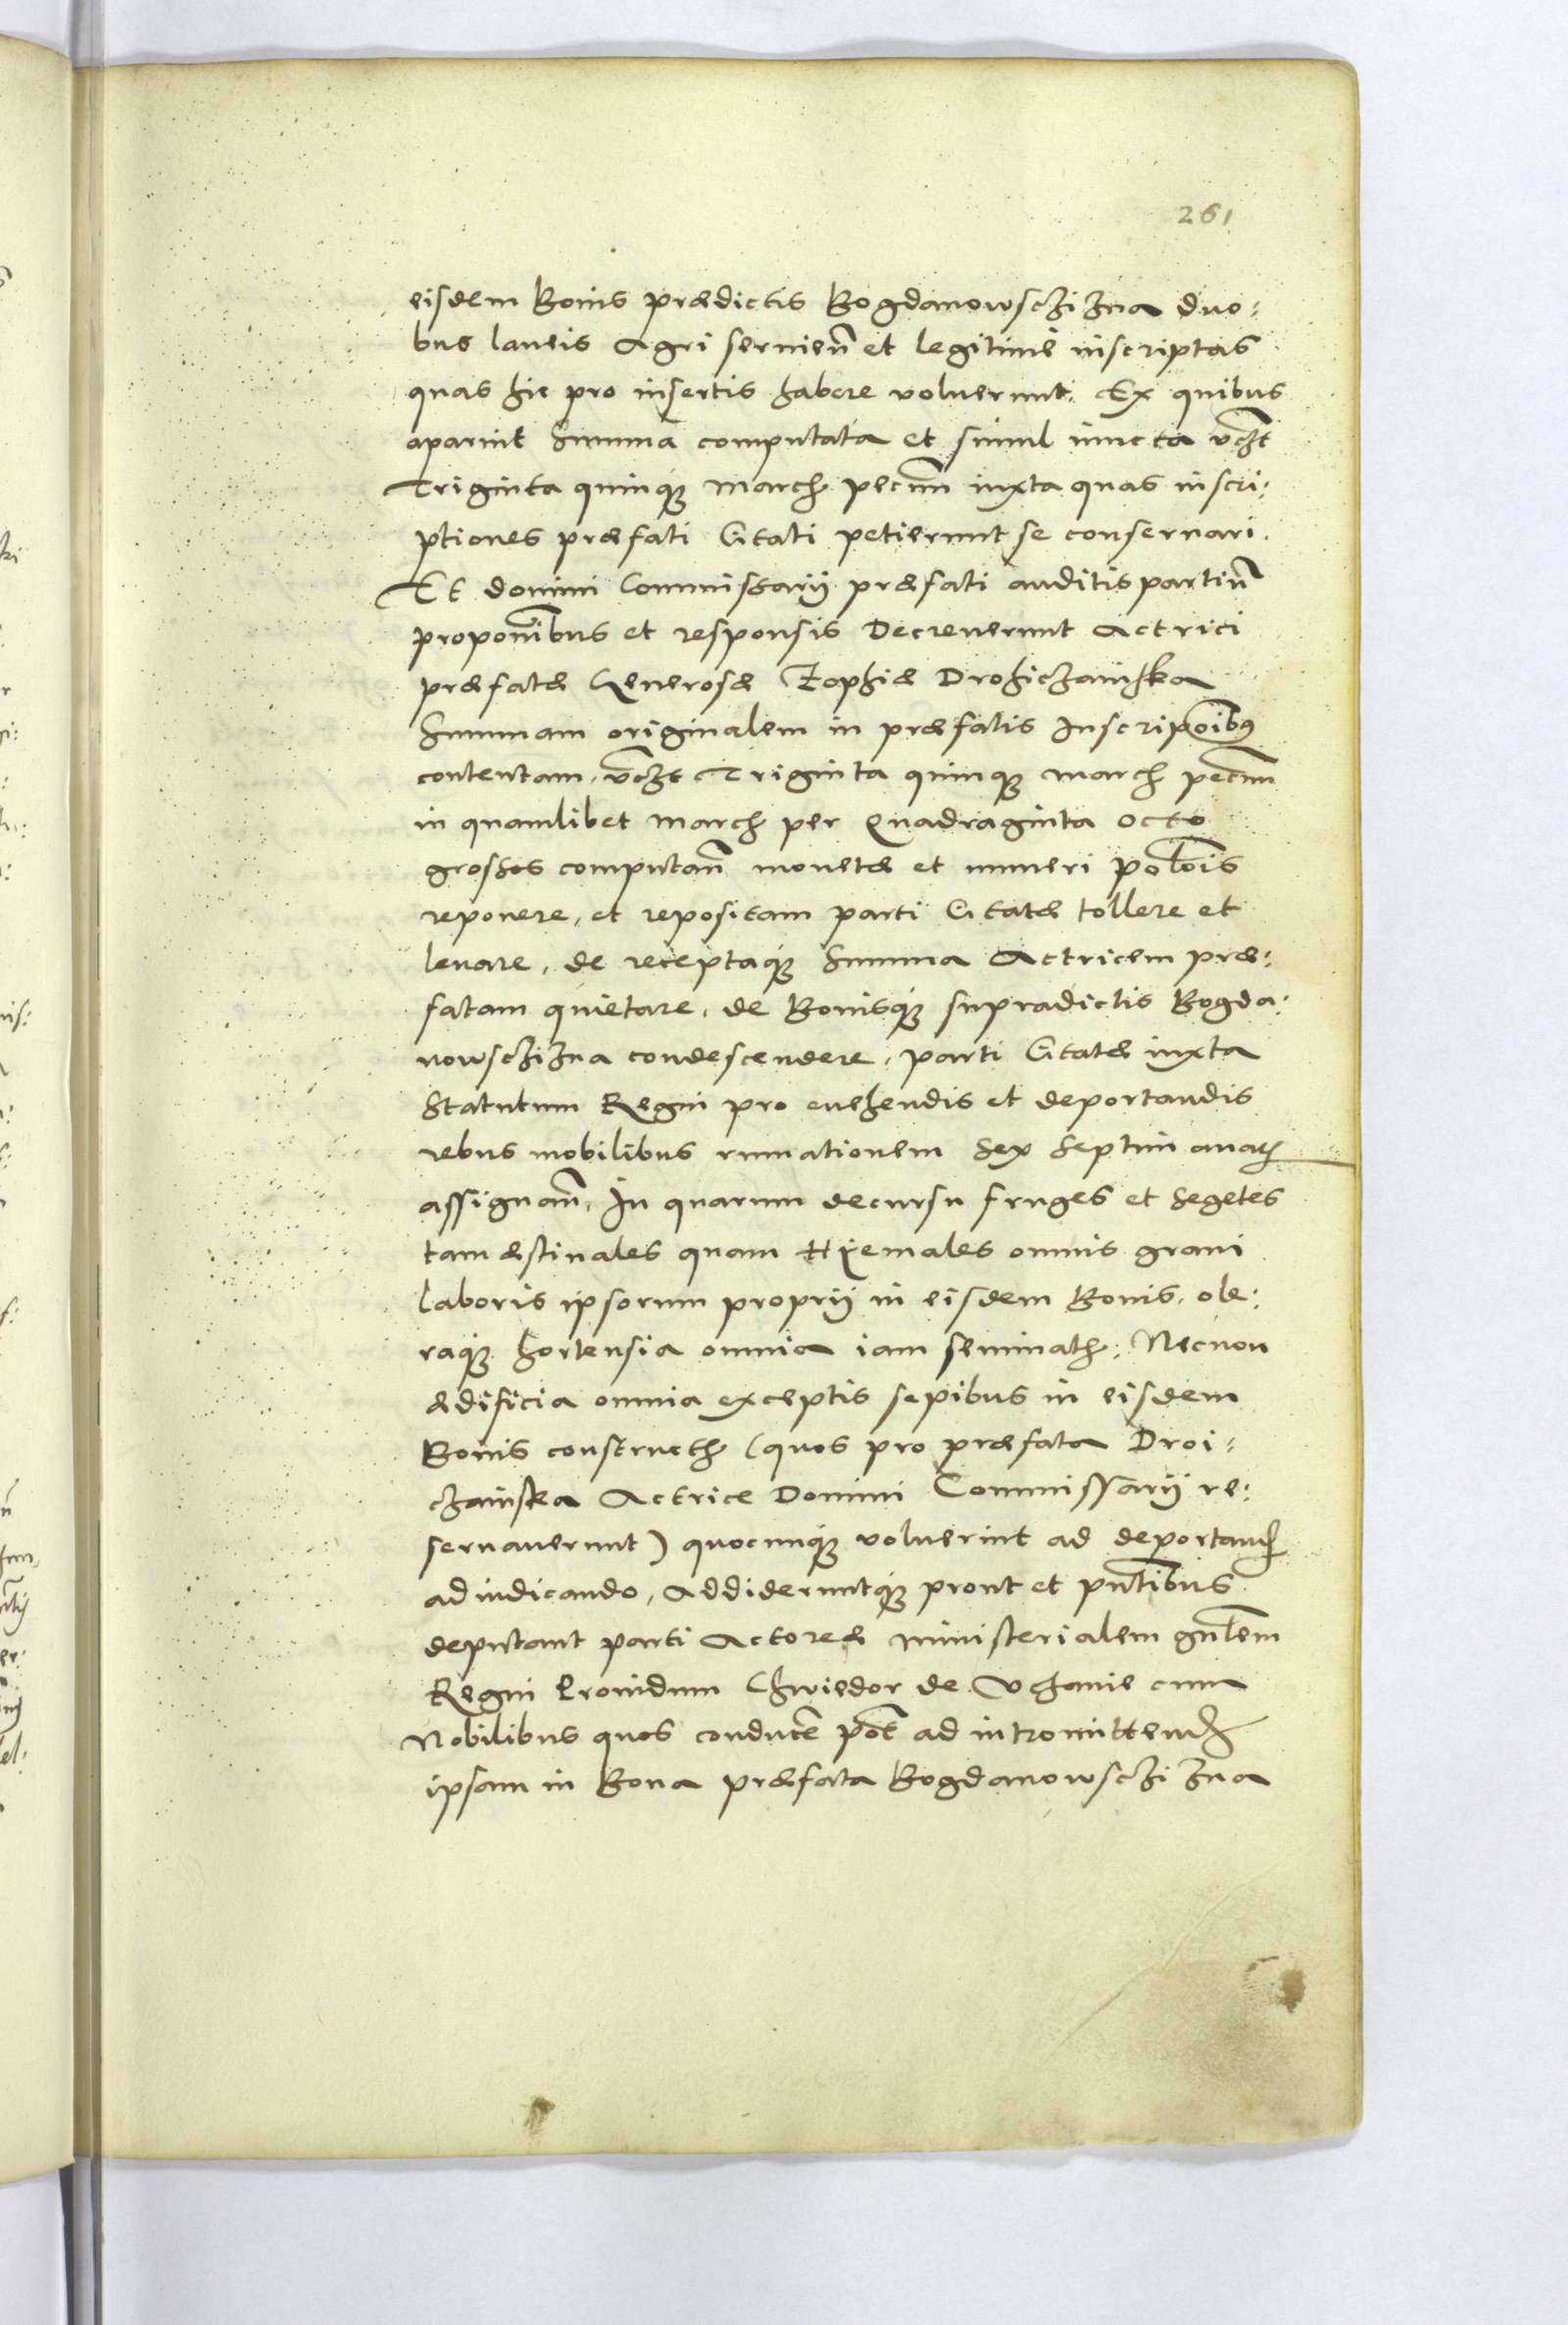 261
eisdem Bonis prædictis Bogdanowschizna duo:
bus laneis Agri servien̄ et legitime inscriptas
quas hic pro insertis habere voluerunt. Ex quibus
aparuit Summa computata et simul iuncta vczt
Triginta quinq; march pecun̄ iuxta quas inscri:
ptiones præfati Citati petierunt se conservari.
Et domini Commissarij præfati auditis partiu̅
propon̄ibus et responsis Decreuerunt Actrici
præfatæ Generosæ Zophiæ Drohiczainska
Summam originalem in præfatis Inscripōibꝰ
contentam, vczt Triginta quinq; march pecun̄
in quamlibet march per Quadraginta octo
grossos computan̄ monetæ et numeri Polōis
reponere, et repositam parti Citatæ tollere et
leuare, de receptaq; Summa Actricem præ:
fatam quietare, de Bonisq; supradictis Bogda:
nowschizna condescendere, parti Citatæ iuxta
Statutum Regni pro euehendis et deportandis
rebus mobilibus rumationem Sex Septimanaꝝ
assignan̄, In quarum decursu fruges et segetes
tam æstiuales quam Hyemales omnis grani
laboris ipsorum proprij in eisdem Bonis, ole:
raq; hortensia omnia iam seminath: Necnon
ædificia omnia exceptis sepibus in eisdem
Bonis constructh (quos pro præfata Droi:
czainska Actrice Domini Commissarij re:
seruauerunt) quocunq; voluerint ad deportand
adiudicando, Addideruntq; prout et pn̄tibus
deputant parti Actoreæ ministerialem gn̄lem
Regni Prouidum Chwiedor de Vhanie cum
Nobilibus quos conduce̅ pot̅ ad intromittend
ipsam in Bona præfata Bogdanowschizna